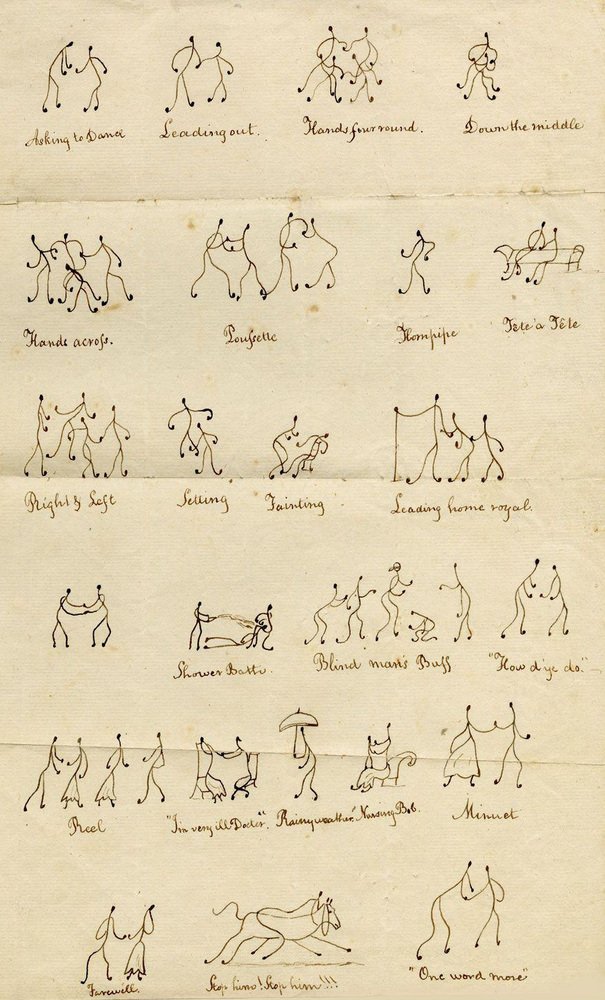 Asking to Dance
Leading out.
Hands four round.
Down the middle
Hands across.
Poussette
Hornpipe
Tête a Tête
Right & Left
Setting
Fainting
Leading home royal.
Shower Bath.
Blind man's Buff
"How d'ye do."
Reel
"I'm very ill Doctor".
Rainy weather.
Nursing Bob.
Minuet
Farewell.
Stop him! Stop him!!!
"One word more"